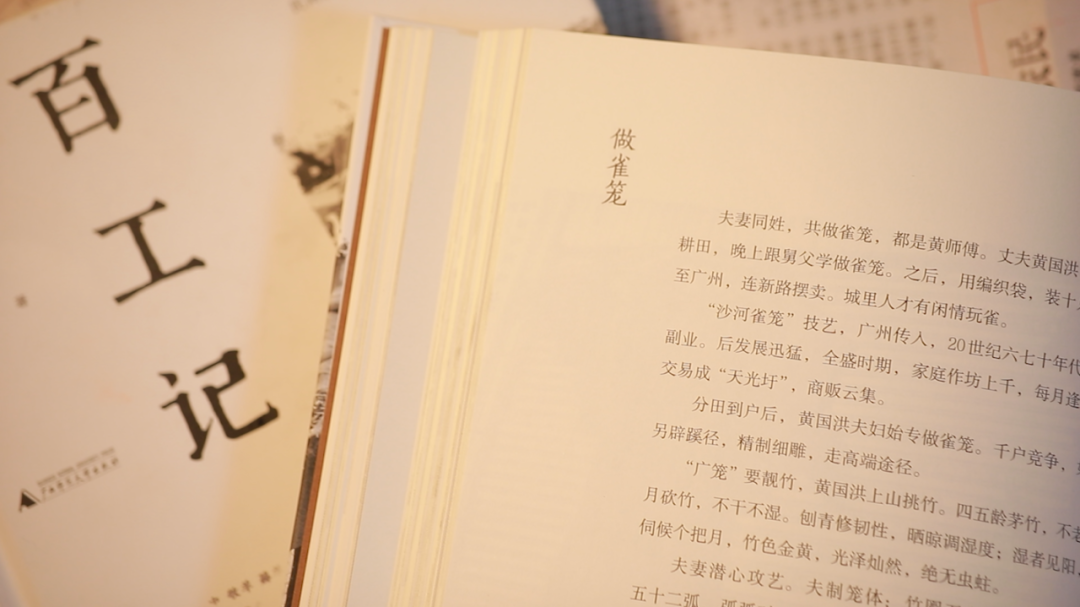 百工记
广西师范大学出版社
做雀笼
夫妻同姓，共做雀笼，都是黄师傅。丈夫黄国洪
耕田，晚上跟舅父学做雀笼。之后，用编织袋，装十
至广州，连新路摆卖。城里人才有闲情玩雀。
“沙河雀笼”技艺，广州传入，20世纪六七十年代
副业。后发展迅猛，全盛时期，家庭作坊上千，每月逢
交易成“天光圩”，商贩云集。
分田到户后，黄国洪夫妇始专做雀笼。千户竞争，
另辟蹊径，精制细雕，走高端途径。
“广笼”要靓竹，黄国洪上山挑竹。四五龄茅竹，不老
月砍竹，不干不湿。刨青修韧性，晒晾调湿度；湿者见阳，
伺候个把月，竹色金黄，光泽灿然，绝无虫蛀。
夫妻潜心攻艺。夫制笼体：竹圈
五十二弧，弧弧